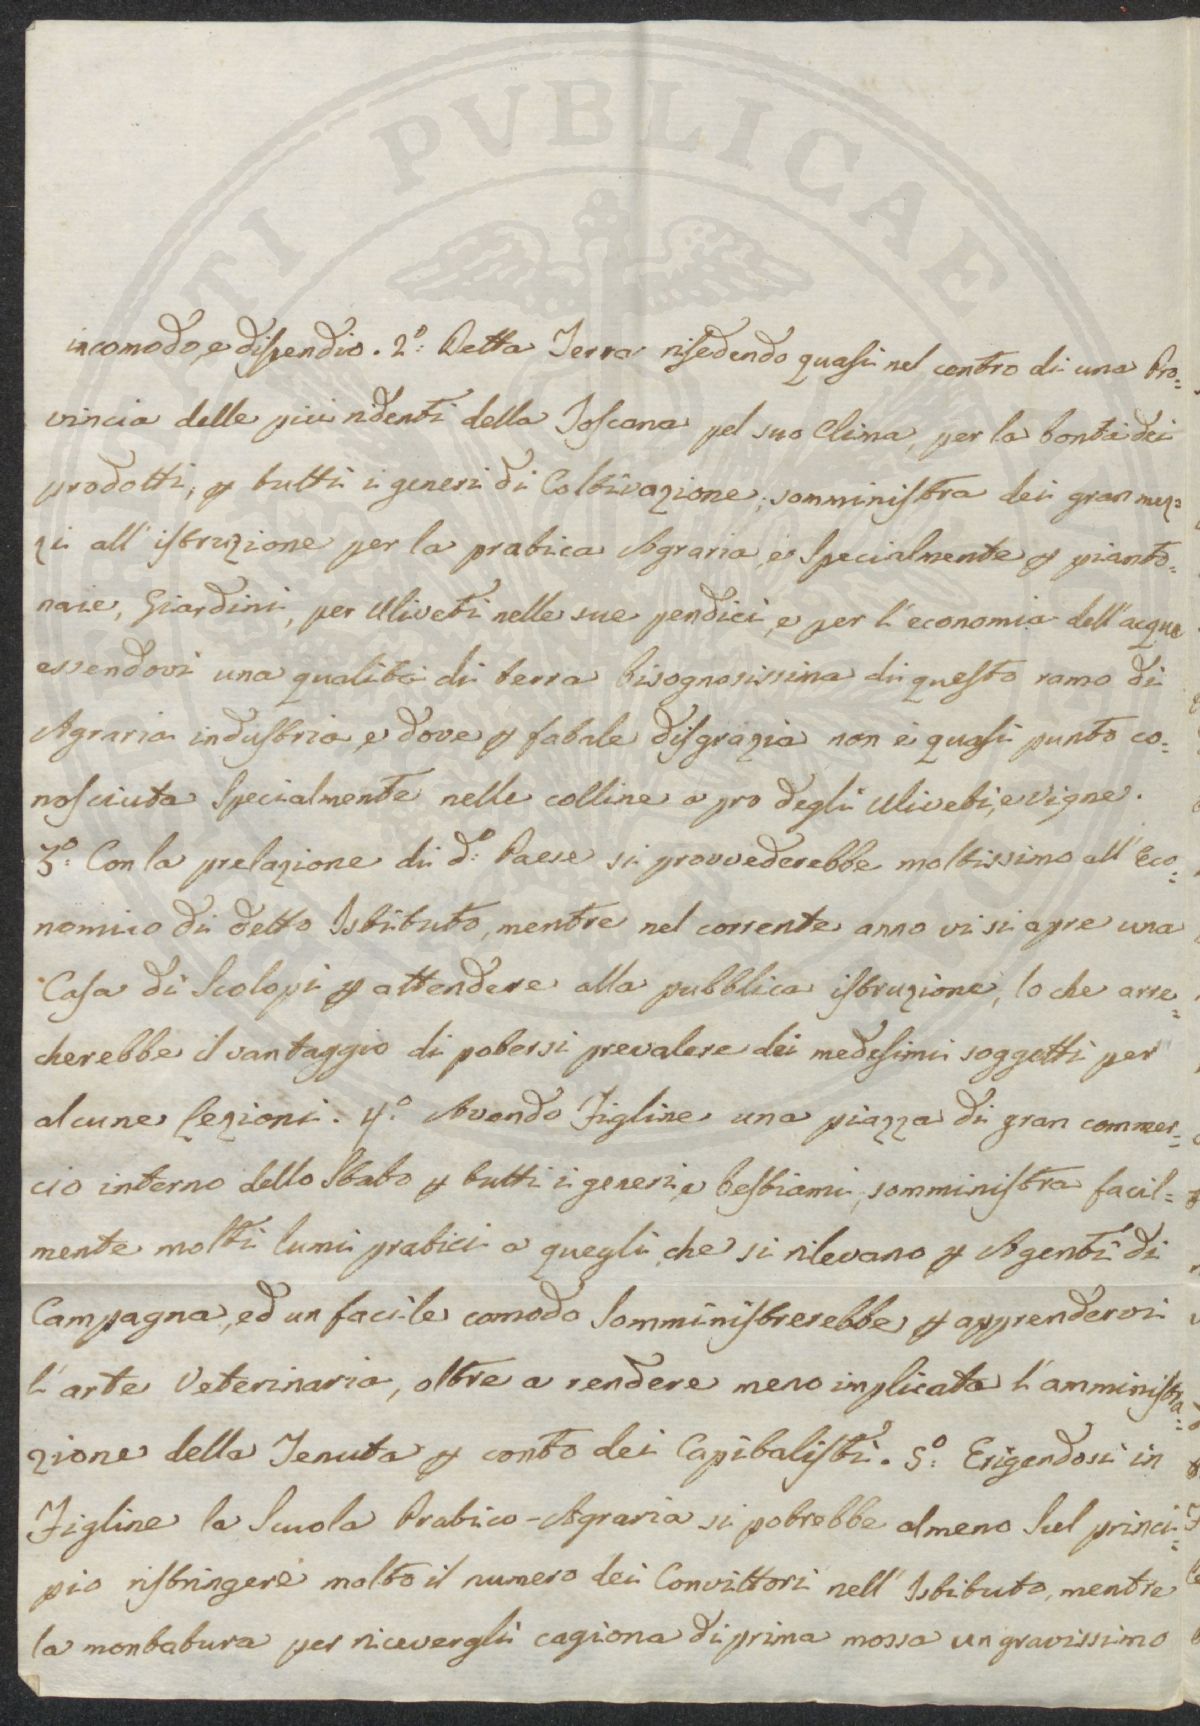 PVBLICAE
incomodo, e dispendio. 2°: Detta Terra risedendo quasi nel centro di una Pro=
vincia delle più ridenti della Toscana pel suo Clima, per la bontà dei
prodotti, p tutti i generi di Coltivazione, somministra dei gran mez=
zi all'istruzione per la pratica Agraria, e specialmente p pianto=
naie, Giardini, per Uliveti nelle sue pendici, e per l'economia dell'acque
essendovi una qualità di terra bisognosissima di questo ramo di
Agraria industria, e dove p fatale disgrazia non è quasi punto co=
nosciuta specialmente nelle colline a pro degli Uliveti, e Vigne.
3°: Con la prelazione di d°: Paese si provvederebbe moltissimo all'Eco=
nomico di detto Istituto, mentre nel corrente anno vi si apre una
Casa di Scolopi p attendere alla pubblica istruzione, lo che arre=
cherebbe il vantaggio di potersi prevalere dei medesimi soggetti per
alcune Lezioni. 4°. Avendo Figline una piazza di gran commer=
cio interno dello Stato p tutti i generi, e bestiami, somministra facil=
mente molti lumi pratici a quegli, che si rilevano p Agenti di
Campagna, ed un facile comodo somministrerebbe p apprendervi
l'arte Veterinaria, oltre a rendere meno implicata l'amministra=
zione della Tenuta p conto dei Capitalisti. 5°: Erigendosi in
Figline la Scuola Pratico-Agraria si potrebbe almeno sul princi=
pio ristringere molto il numero dei Convittori nell'Istituto, mentre
la montatura per ricevergli cagiona di prima mossa un gravissimo